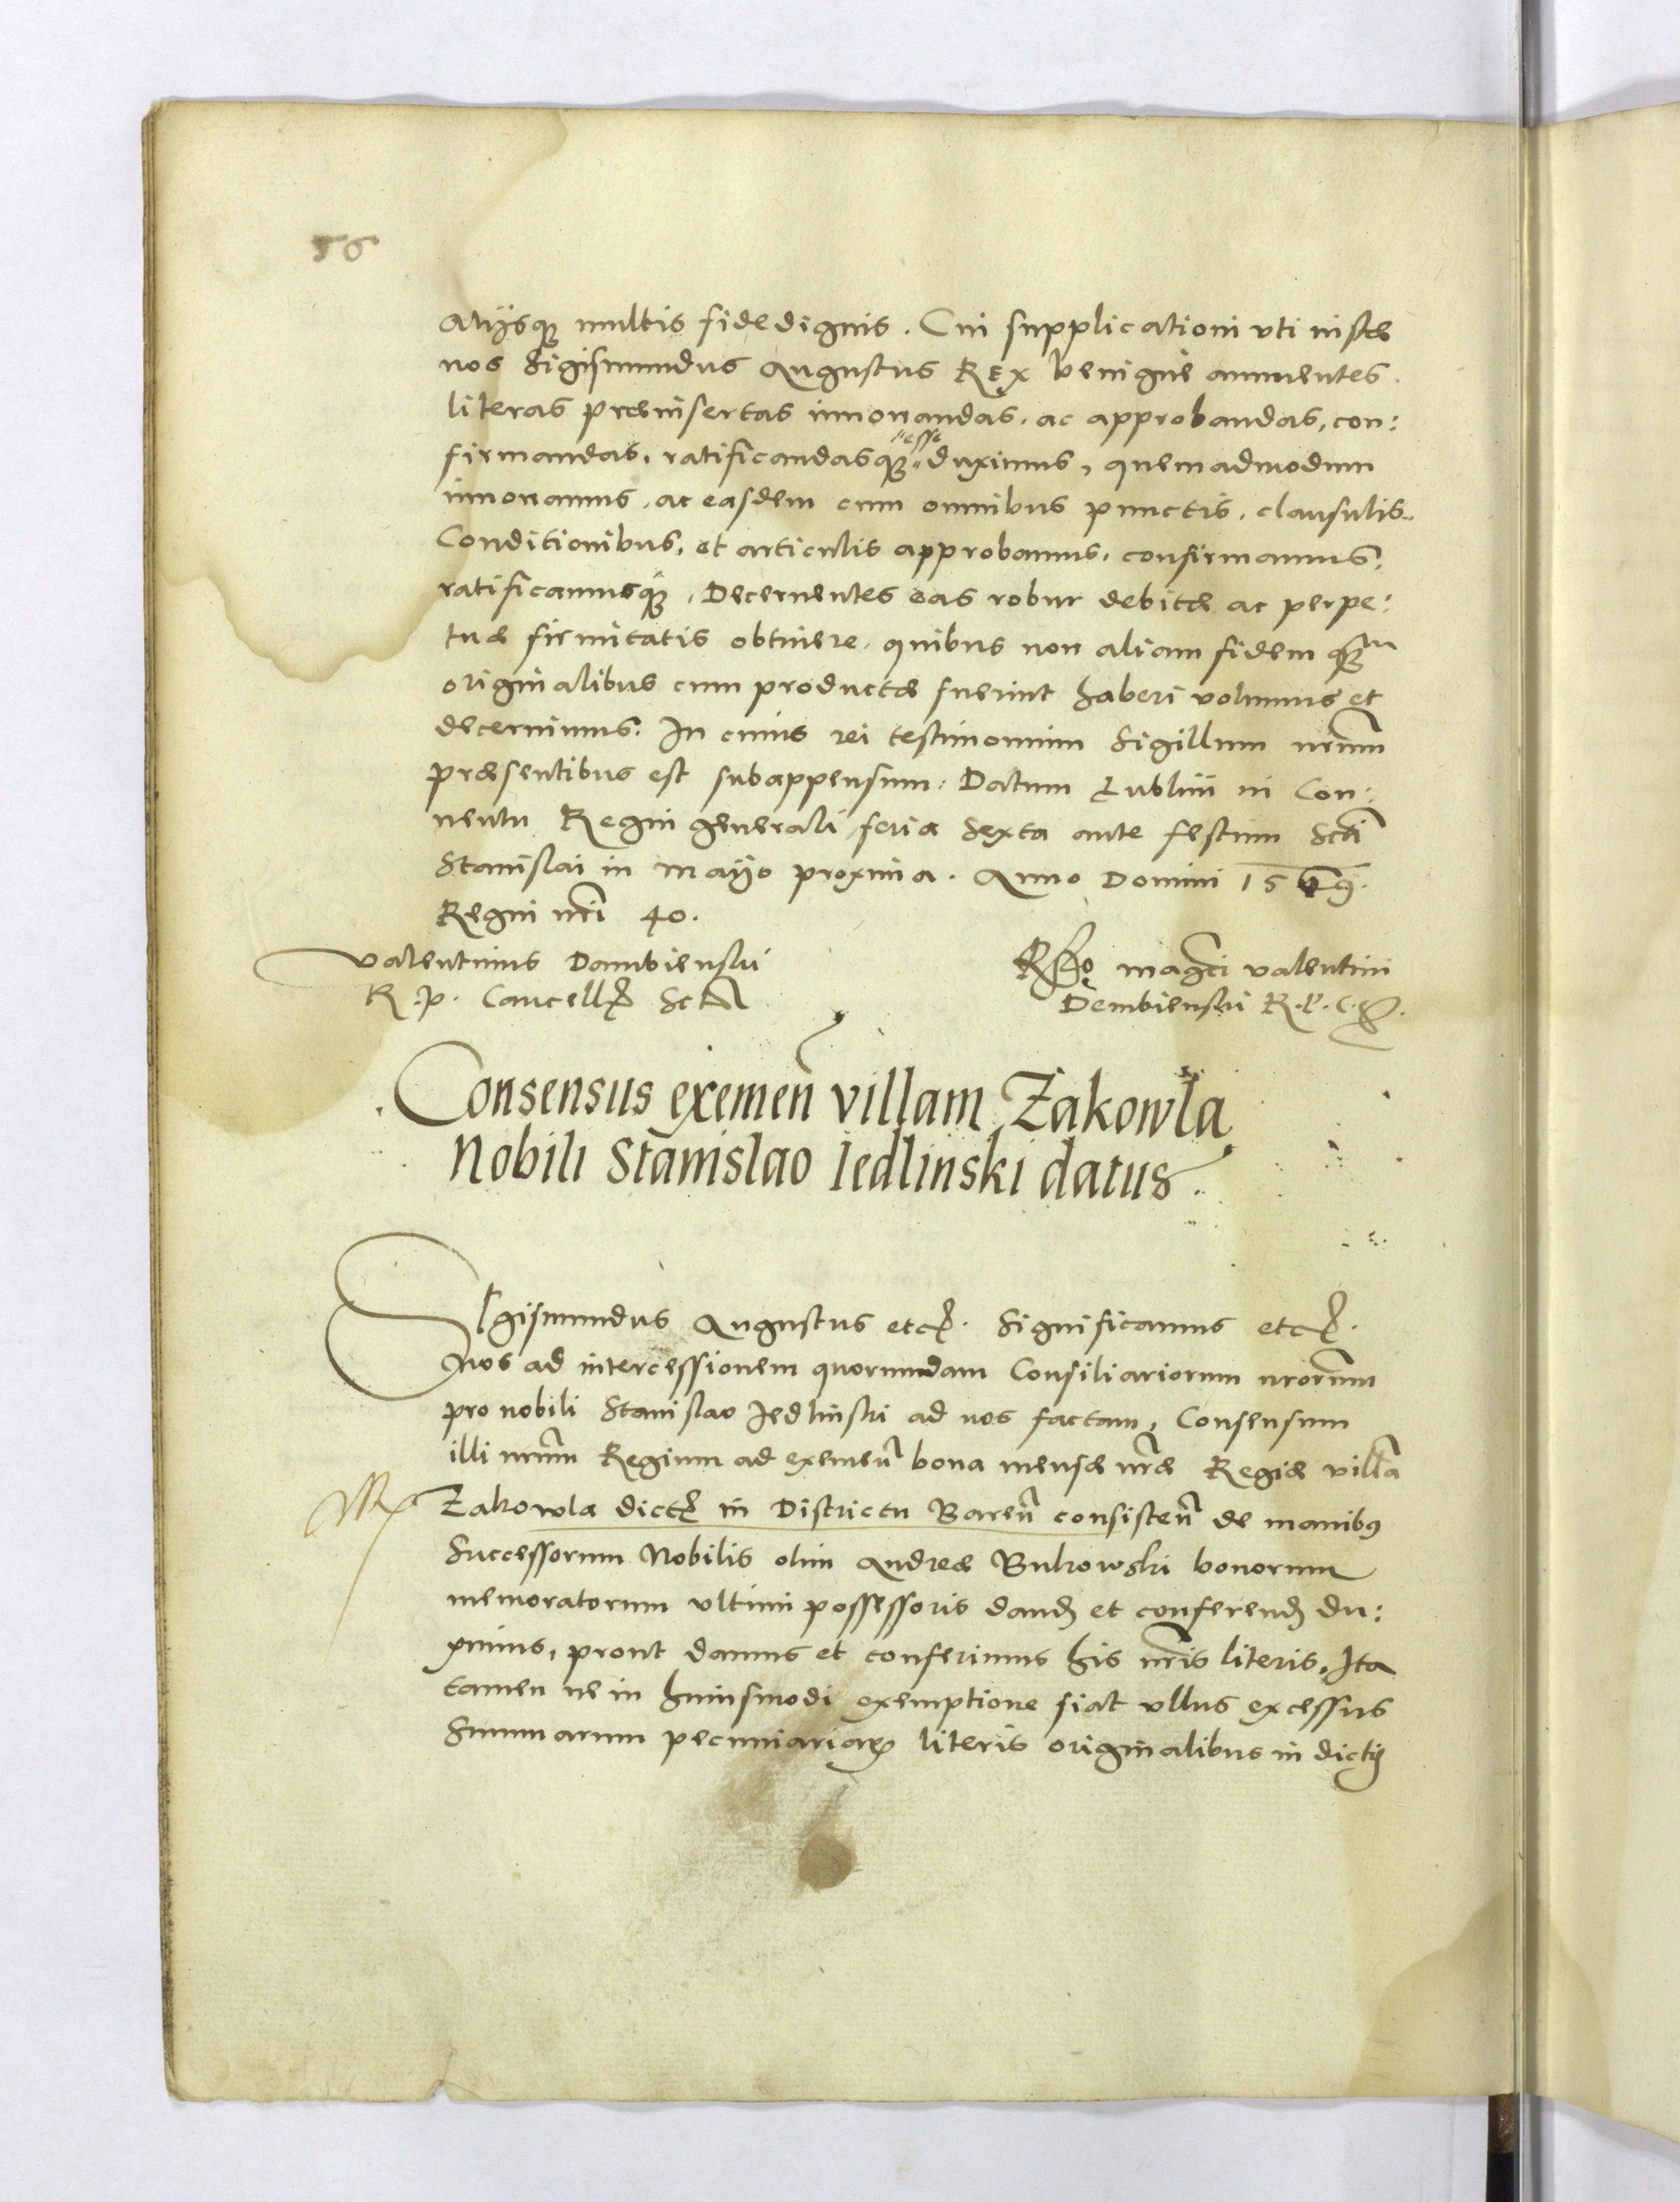 56
alijsq3 multis fidedignis. Cui supplicationi uti iustæ
nos Sigismundus Augustus Rex benigne annuentes.
literas præinsertas innouandas. ac approbandas, con:
firmandas, ratificandasq3 esse duximus, quemadmodum
innouamus, ac easdem cum omnibus punctis, clausulis.
Conditionibus, et articulis approbamus, confirmamus,
ratificamusq3, Decernentes eas robur debitæ ac perpe:
tuæ firmitatis obtinere, quibus non aliam fidem q3m
originalibus cum productæ fuerint haberi volumus et
decernimus. In cuius rei testimonium Sigillum nrum
præsentibus est subappensum. Datum Lublini in Con:
uentu Regni generali feria Sexta ante festum Scti
Stanislai in Maijo proxima. Anno Domini 1569.
Regni nri 40.
Valentinus Dambienski
R. p. Cancell Sct
Rlo magci Valentini
Dembienski R. P. C.
Consensus eximen villam Zakowla
Nobili Stanislao Iedlinski datus.
SIgismundus Augustus etc. Significamus etc.
Nos ad intercessionem quorumdam Consiliariorum nrorum
pro nobili Stanislao Jedlinski ad nos factam, Consensum
illi nrum Regium ad eximen bona mensæ nræ Regiæ villa
Zakowla dict in Districtu Baren consisten de manib9
Successorum Nobilis olim Andreæ Bukowski bonorum
memoratorum vltimi possessoris dand et conferend du:
ximus, prout damus et conferimus his nris literis. Ita
tamen ne in huiusmodi exemptione fiat vllus excessus
Summarum pecuniariar literis originalibus in dictis